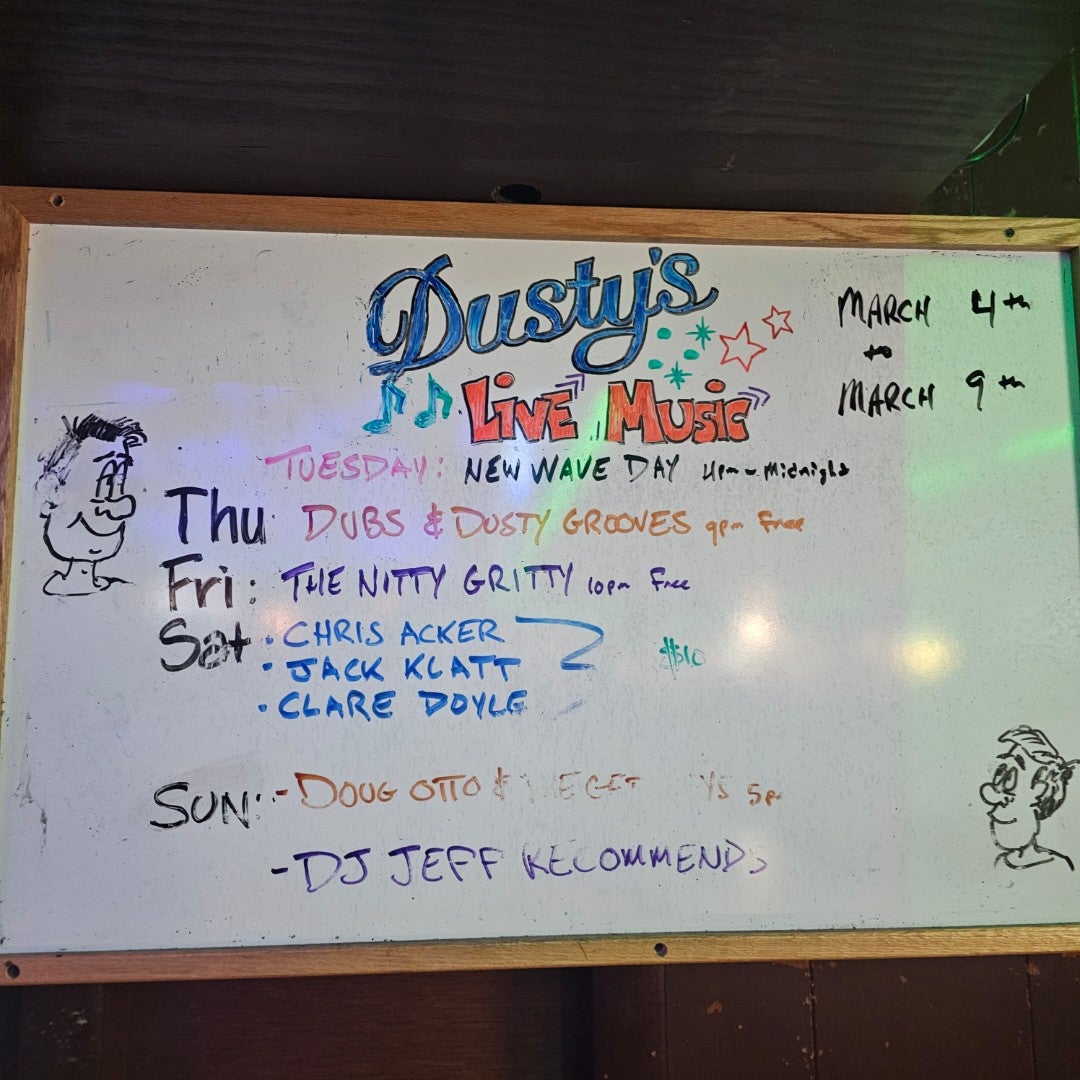 Dusty's
LIVE MUSIC
MARCH 4th
to
MARCH 9th
TUESDAY: NEW WAVE DAY 4pm - Midnight
Thu DUBS & DUSTY GROOVES 9pm Free
Fri: THE NITTY GRITTY 10pm Free
Sat • CHRIS ACKER
• JACK KLATT $10
• CLARE DOYLE
SUN: - DOUG OTTO &
- DJ JEFF RECOMMENDS